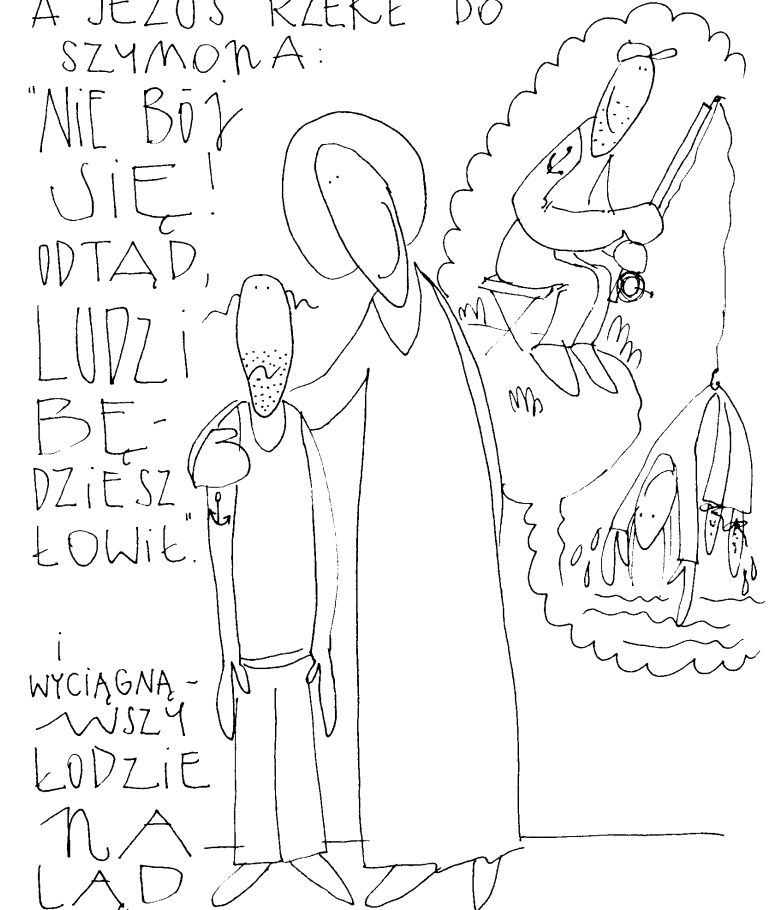 A JEZUS RZEKŁ DO
SZYMONA:
"NIE BÓJ
SIĘ!
ODTĄD,
LUDZI
BĘ-
DZIESZ
ŁOWIŁ".
i
WYCIĄGNĄ-
WSZY
ŁODZIE
NA
LĄD